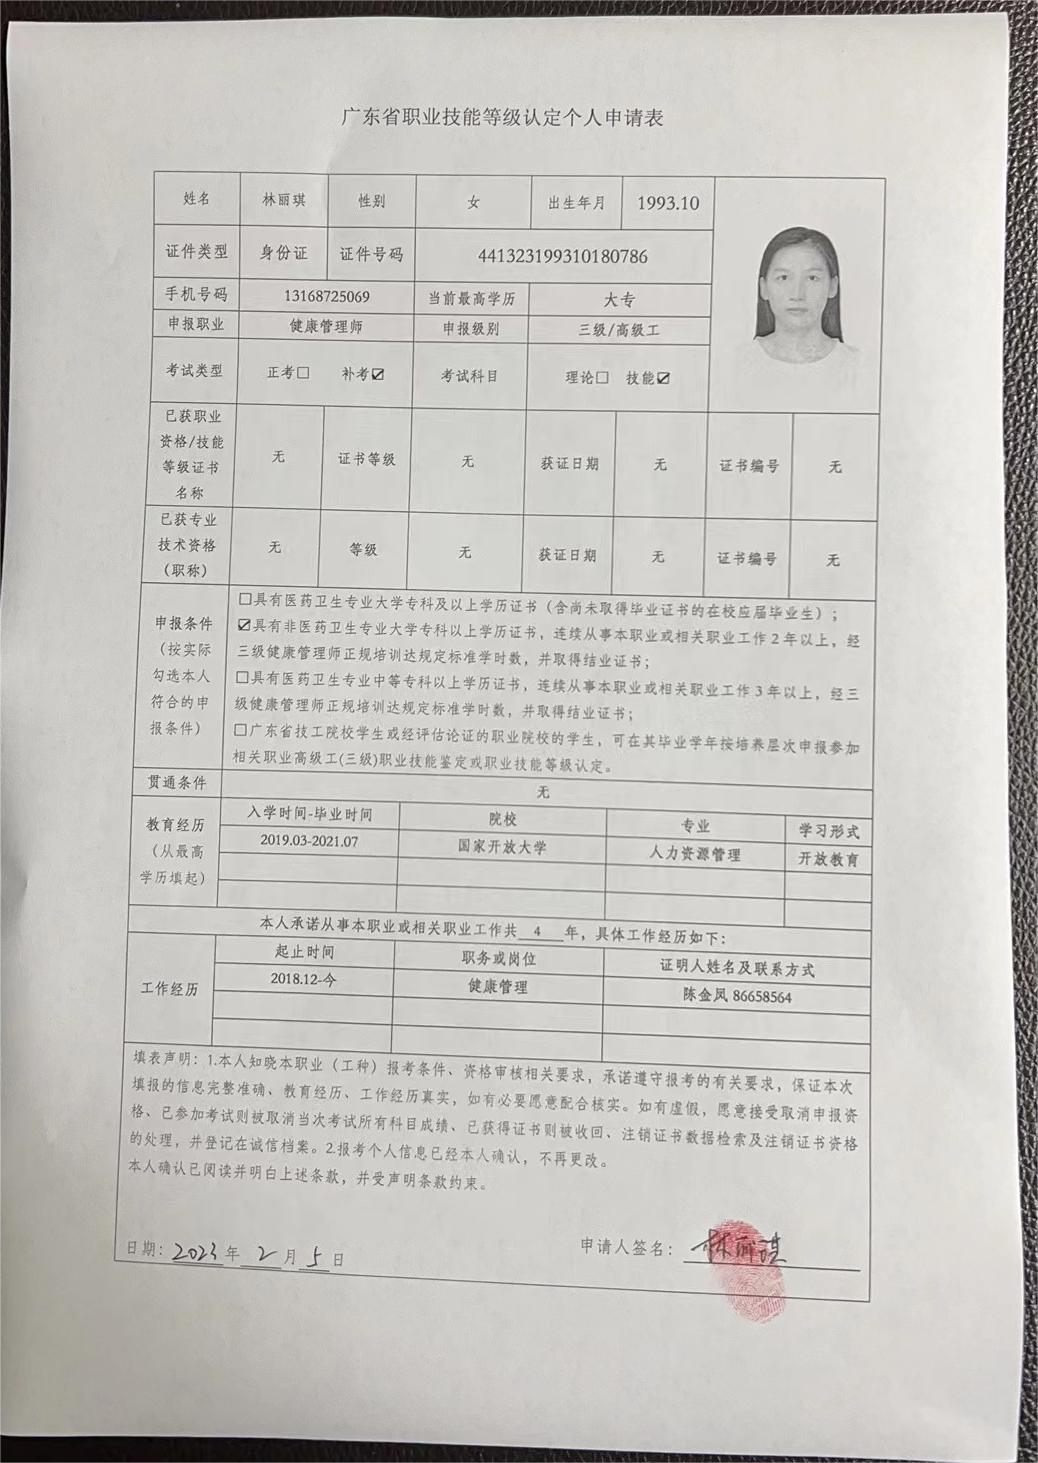 广东省职业技能等级认定个人申请表
姓名 林丽琪 性别 女 出生年月 1993.10
证件类型 身份证 证件号码 441323199310180786
手机号码 13168725069 当前最高学历 大专
申报职业 健康管理师 申报级别 三级/高级工
考试类型 正考☐ 补考☑ 考试科目 理论☐ 技能☑
已获职业
资格/技能
等级证书
名称
无 证书等级 无 获证日期 无 证书编号 无
已获专业
技术资格
（职称）
无 等级 无 获证日期 无 证书编号 无
申报条件
（按实际
勾选本人
符合的申
报条件）
☐具有医药卫生专业大学专科及以上学历证书（含尚未取得毕业证书的在校应届毕业生）；
☑具有非医药卫生专业大学专科以上学历证书，连续从事本职业或相关职业工作2年以上，经
三级健康管理师正规培训达规定标准学时数，并取得结业证书；
☐具有医药卫生专业中等专科以上学历证书，连续从事本职业或相关职业工作3年以上，经三
级健康管理师正规培训达规定标准学时数，并取得结业证书；
☐广东省技工院校学生或经评估论证的职业院校的学生，可在其毕业学年按培养层次申报参加
相关职业高级工(三级)职业技能鉴定或职业技能等级认定。
贯通条件 无
教育经历
（从最高
学历填起）
入学时间-毕业时间 院校 专业 学习形式
2019.03-2021.07 国家开放大学 人力资源管理 开放教育
本人承诺从事本职业或相关职业工作共 4 年，具体工作经历如下：
工作经历
起止时间 职务或岗位 证明人姓名及联系方式
2018.12-今 健康管理 陈金凤 86658564
填表声明：1.本人知晓本职业（工种）报考条件、资格审核相关要求，承诺遵守报考的有关要求，保证本次
填报的信息完整准确、教育经历、工作经历真实，如有必要愿意配合核实。如有虚假，愿意接受取消申报资
格、已参加考试则被取消当次考试所有科目成绩、已获得证书则被收回、注销证书数据检索及注销证书资格
的处理，并登记在诚信档案。2.报考个人信息已经本人确认，不再更改。
本人确认已阅读并明白上述条款，并受声明条款约束。
日期：2023年2月5日 申请人签名：林丽琪